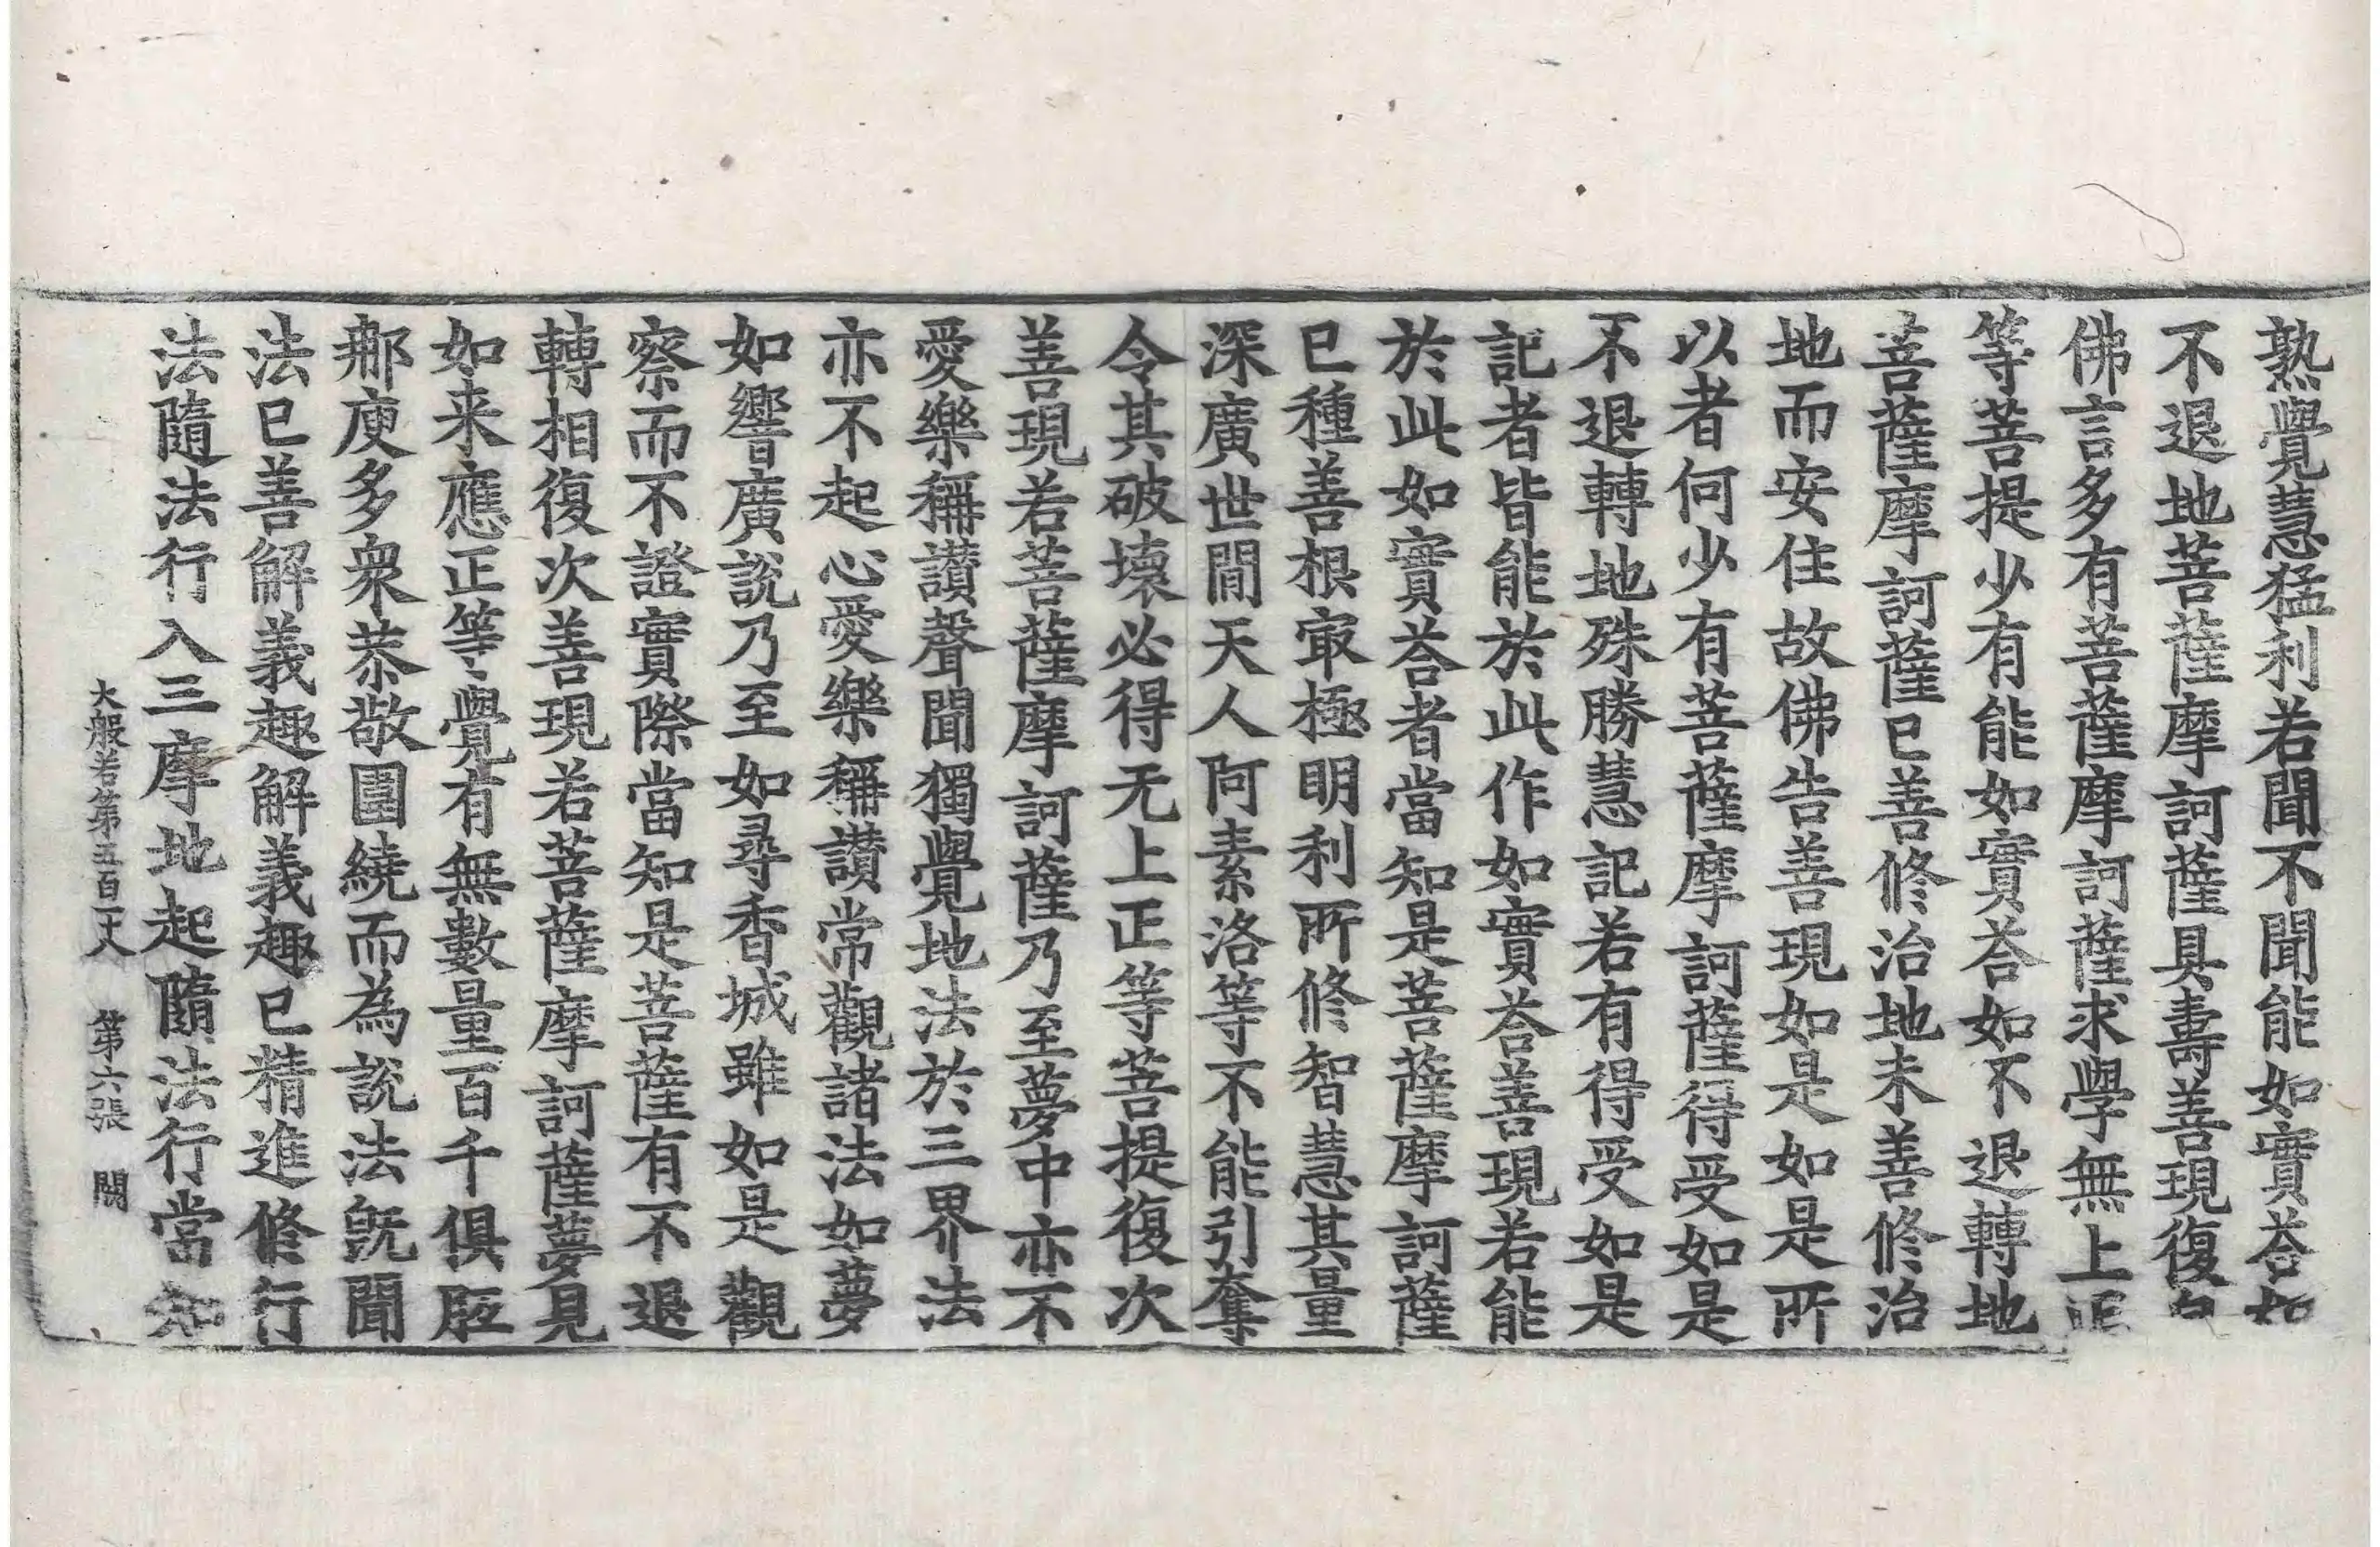 熟覺慧猛利若聞不聞能如實荅如
不退地菩薩摩訶薩具壽善現復白
佛言多有菩薩摩訶薩求學無上正
等菩提少有能如實荅如不退轉地
菩薩摩訶薩巳善修治地未善修治
地而安住故佛告善現如是如是所
以者何少有菩薩摩訶薩得受如是
不退轉地殊勝慧記若有得受如是
記者皆能於此作如實荅善現若能
於此如實荅者當知是菩薩摩訶薩
巳種善根㝡極明利所修智慧其量
深廣世間天人阿素洛等不能引奪
令其破壞必得无上正等菩提復次
善現若菩薩摩訶薩乃至夢中亦不
愛樂稱讃聲聞獨覺地法於三界法
亦不起心愛樂稱讃常觀諸法如夢
如響廣說乃至如尋香城雖如是觀
察而不證實際當知是菩薩有不退
轉相復次善現若菩薩摩訶薩夢見
如来應正等覺有無數量百千俱胝
那庾多衆恭敬圍繞而為說法旣聞
法巳善解義趣解義趣巳精進修行
法隨法行入三摩地起隨法行當知
大般若第五百二十八 第六張 闕